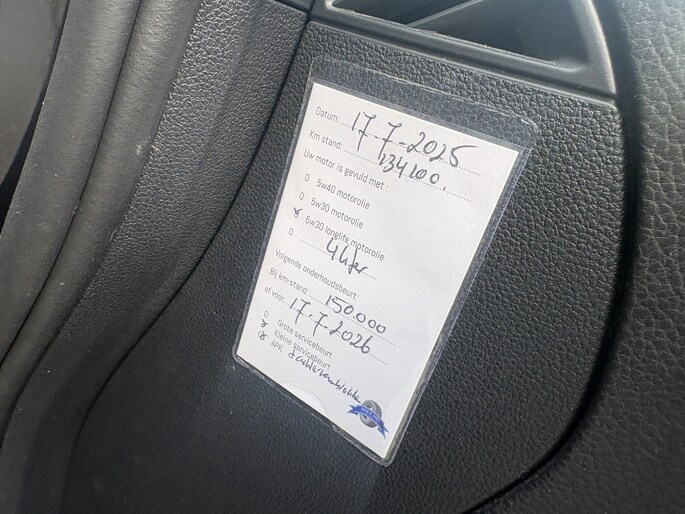 Datum: 17-7-2025
Km stand: 134100.
Uw motor is gevuld met :
O 5w40 motorolie
O 5w30 motorolie
O 5w30 longlife motorolie
O 4 liter
Volgende onderhoudsbeurt:
Bij km-stand: 150.000
of voor: 17.7.2026
O Grote servicebeurt
O Kleine servicebeurt
O APK